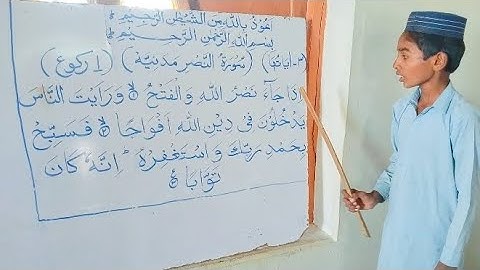 اَعُوْذُ بِاللّٰهِ مِنَ الشَّيْطٰنِ الرَّجِيْمِ
بِسْمِ اللّٰهِ الرَّحْمٰنِ الرَّحِيْمِ
(سُوْرَةُ النَّصْرِ مَدَنِيَّةٌ) (رکوع ۱)
اِذَا جَآءَ نَصْرُ اللّٰهِ وَ الْفَتْحُ ۙ وَ رَاَيْتَ النَّاسَ
يَدْخُلُوْنَ فِيْ دِيْنِ اللّٰهِ اَفْوَاجًا ۙ فَسَبِّحْ
بِحَمْدِ رَبِّكَ وَ اسْتَغْفِرْهُ ؕ اِنَّهٗ كَانَ
تَوَّابًا